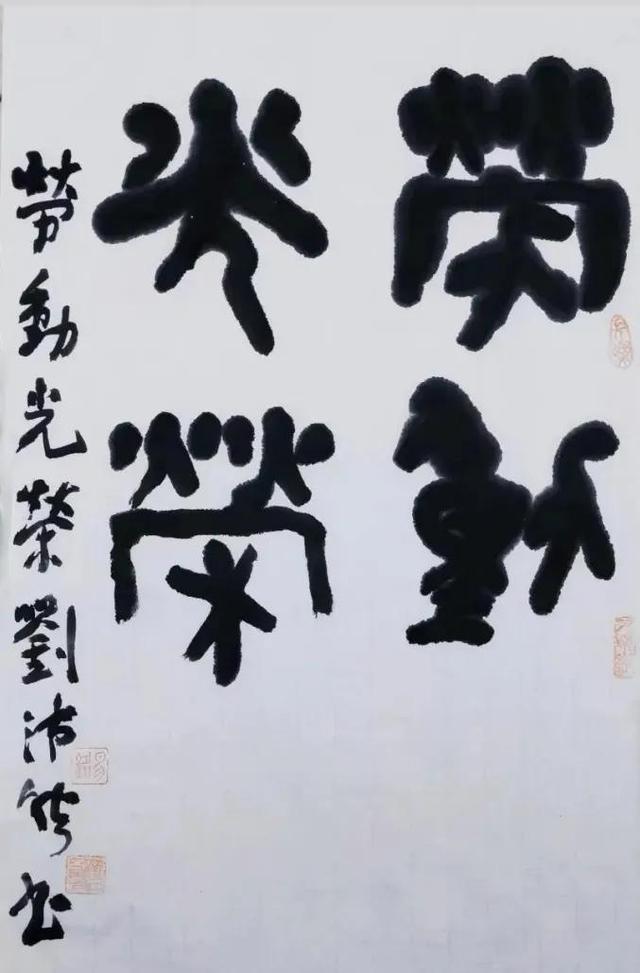 勞動
光榮
勞動光榮劉沛書